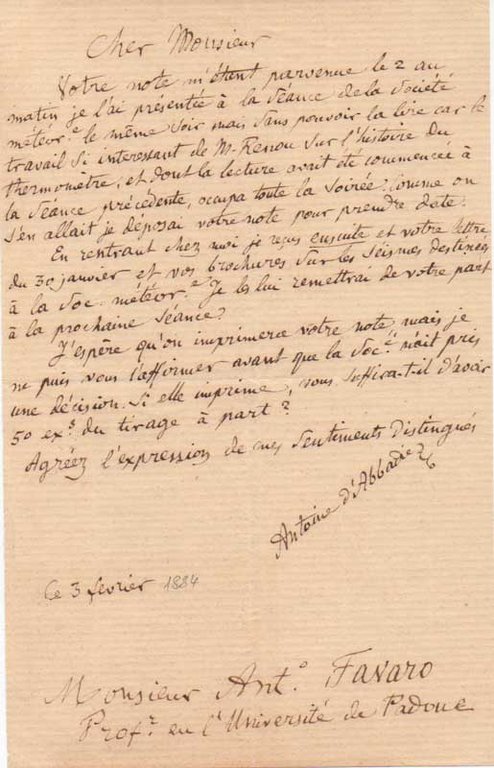 Cher Monsieur
Votre note m'étant parvenue le 2 au
matin je l'ai présentée à la séance de la Société
météor.e le même soir mais sans pouvoir la lire car le
travail si interessant de M. Renou sur l'histoire du
thermomètre, et dont la lecture avait été commencée à
la séance précédente, occupa toute la soirée. Comme on
s'en allait je déposai votre note pour prendre date.
En rentrant chez moi je reçus ensuite et votre lettre
du 30 janvier et vos brochures sur les séismes destinées
à la Soc. météor.e Je les lui remettrai de votre part
à la prochaine séance.
J'espère qu'on imprimera votre note, mais je
ne puis vous l'affirmer avant que la Soc.é n'ait pris
une décision. Si elle imprime, vous suffira-t-il d'avoir
50 ex.s du tirage à part?
Agréez l'expression de mes sentiments distingués
Antoine d'Abbadie
Ce 3 février 1884
Monsieur Ant.o Favaro
Prof.r en l'Université de Padoue